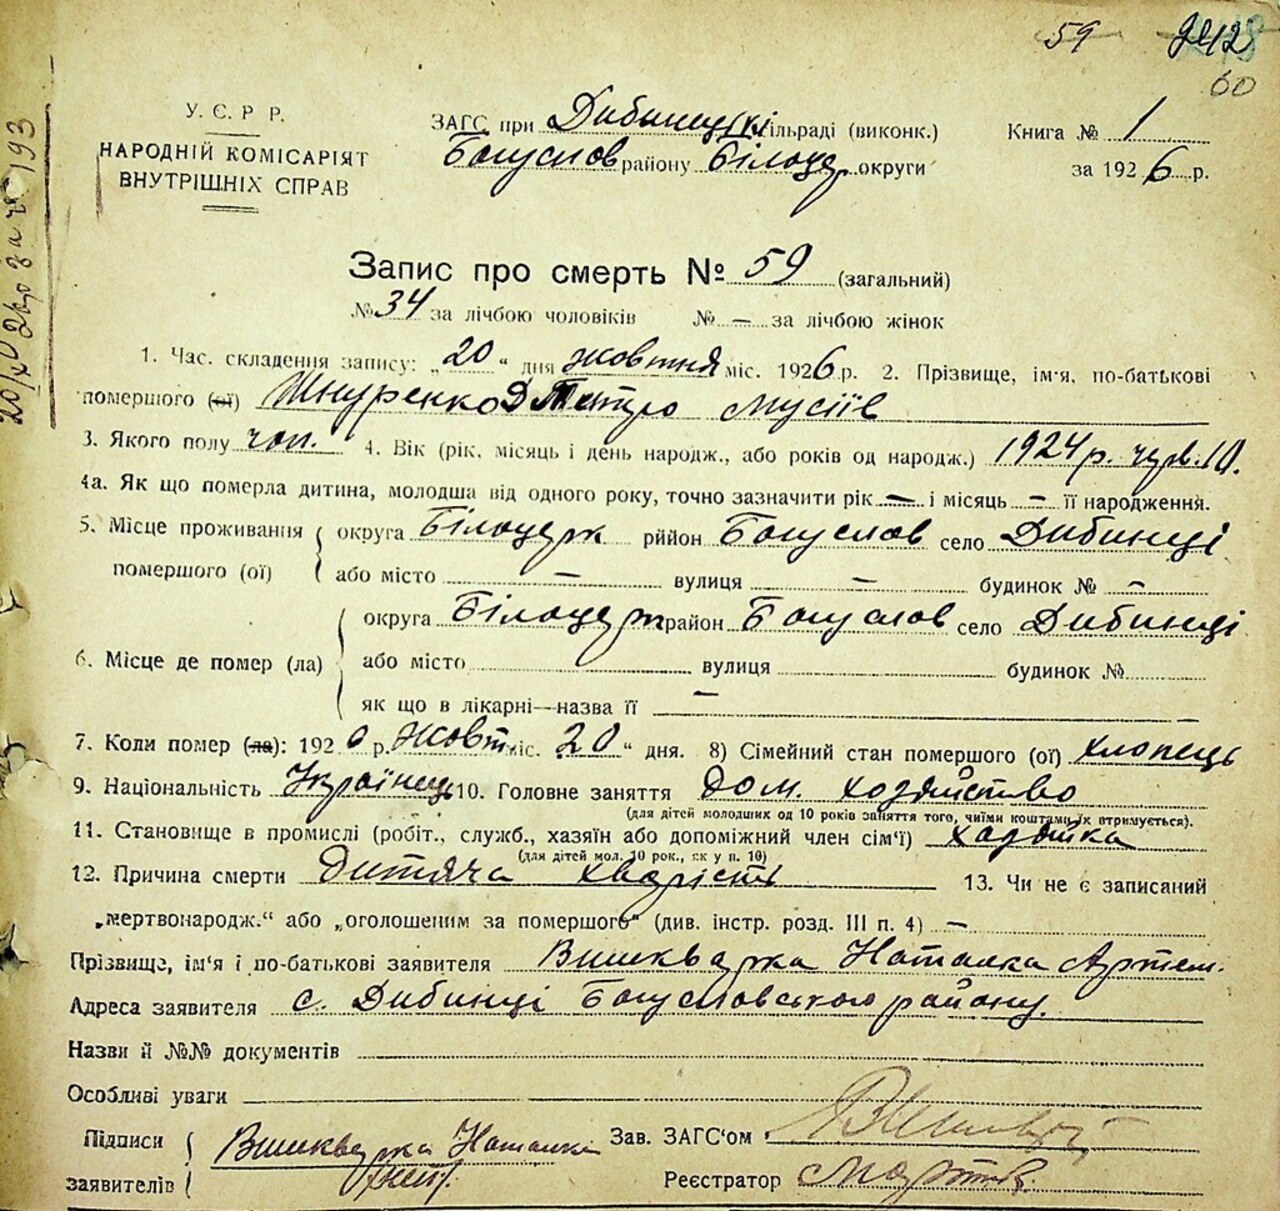 59
60
У. Є. Р. Р.
НАРОДНІЙ КОМІСАРІЯТ
ВНУТРІШНІХ СПРАВ
ЗАГС при Дибинецькі сільраді (виконк.)
Богуслов району Білоцер. округи
Книга № 1
за 1926 р.
Запис про смерть № 59 (загальний)
№ 34 за лічбою чоловіків № — за лічбою жінок
1. Час. складення запису: „20“ дня жовтня міс. 1926 р. 2. Прізвище, ім'я, по-батькові
помершого (ої) Шнуренко Дмитро Мусіїв
3. Якого полу чол. 4. Вік (рік, місяць і день народж., або років од народж.) 1924 р. чурв. 10.
4а. Як що померла дитина, молодша від одного року, точно зазначити рік — і місяць — її народження.
5. Місце проживання помершого (ої) округа Білоцерк рййон Богуслов село Дибинці
або місто — вулиця — будинок № —
6. Місце де помер (ла) округа Білоцерк район Богуслов село Дибинці
або місто вулиця будинок №
як що в лікарні—назва її —
7. Коли помер (ла): 1926 р. Жовт міс. 20 “ дня. 8) Сімейний стан помершого (ої) хлопець
9. Національність Українець 10. Головне заняття Дом. хозяйство
(для дітей молодших од 10 років заняття того, чиїми коштами їх втримується).
11. Становище в промислі (робіт., служб., хазяїн або допоміжний член сім'ї) хозяйка
(для дітей мол. 10 рок., як у п. 10)
12. Причина смерти Дитяча хварість 13. Чи не є записаний
„мертвонародж.“ або „оголошеним за помершого“ (див. інстр. розд. III п. 4) —
Прізвище, ім'я і по-батькові заявителя Вишкварка Наталка Артем.
Адреса заявителя с. Дибинці Богусловського району.
Назви й №№ документів
Особливі уваги
Підписи заявителів Вишкварка Наталка
Зав. ЗАГС'ом
Реєстратор